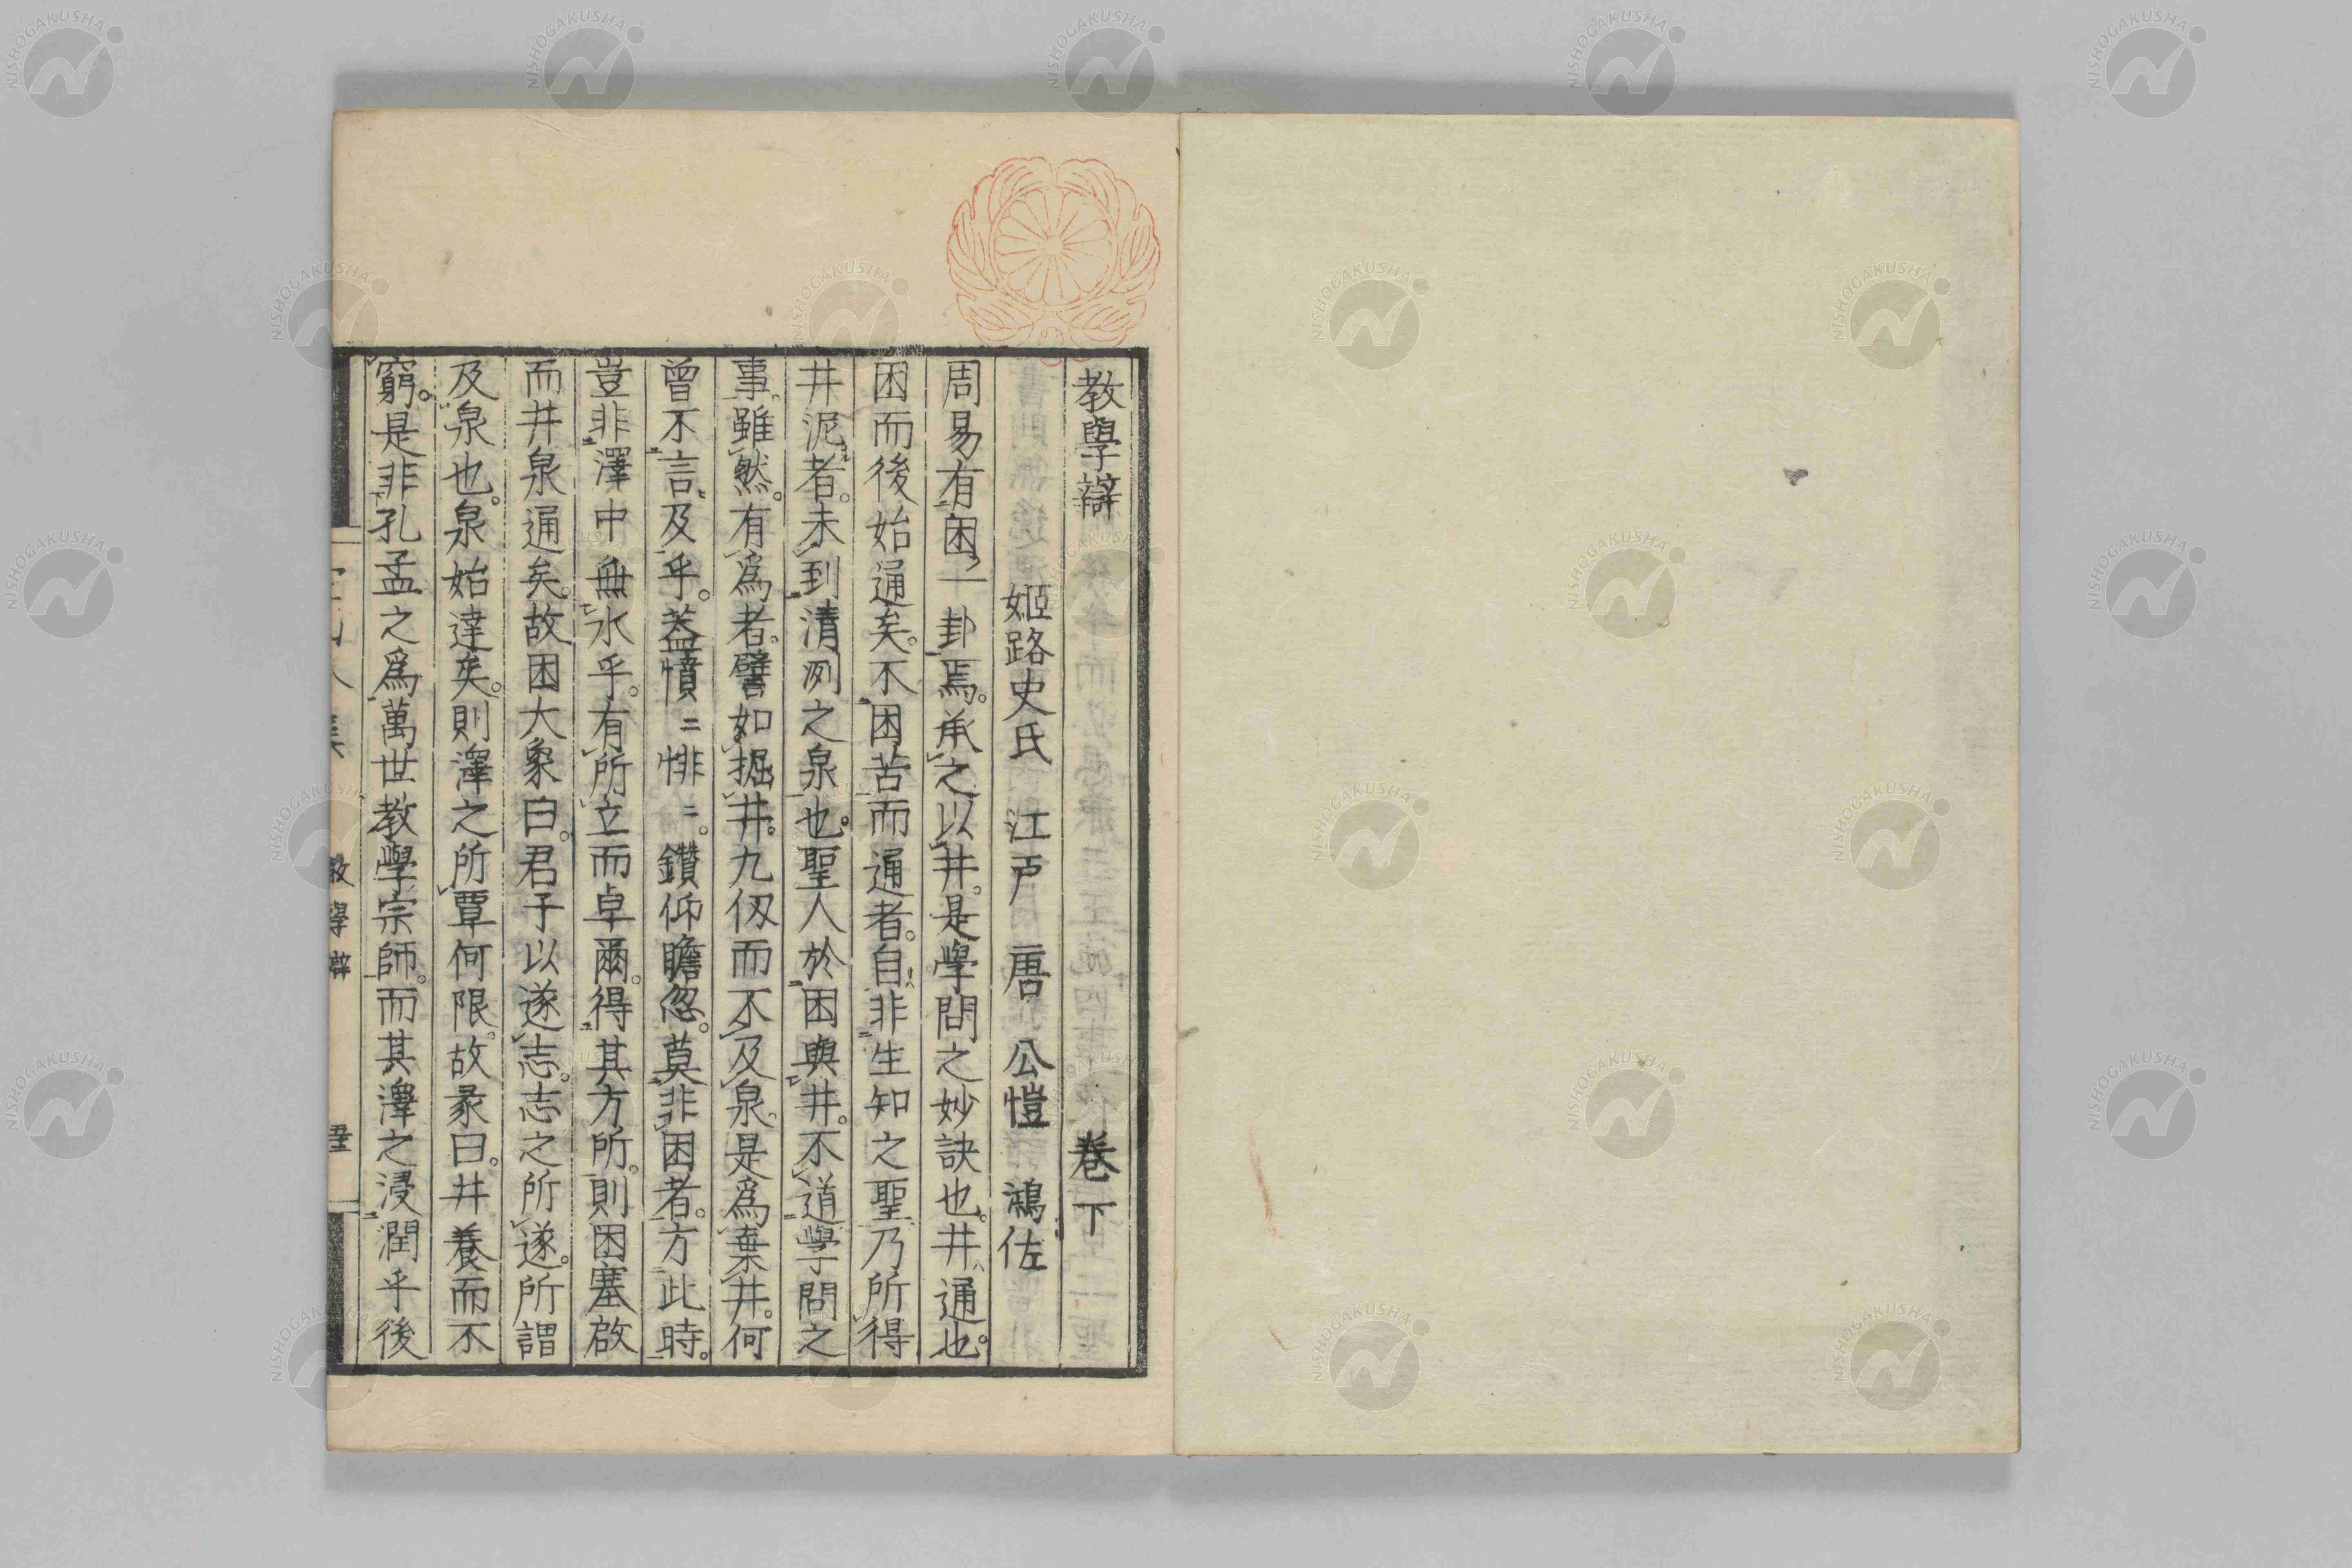 教學辯 卷下
姬路史氏 江戸 唐 公愷 鴻佐
周易有困一卦焉。承之以井。是學問之妙訣也。井通也。
困而後始通矣。不困苦而通者。自非生知之聖乃所得
井泥者。未到清冽之泉也。聖人於困與井。不道學問之
事。雖然。有爲者。譬如掘井。九仭而不及泉。是爲棄井。何
曾不言及乎。蓋憤〻悱〻。鑽仰瞻忽。莫非困者。方此時。
豈非澤中無水乎。有所立而卓爾。得其方所。則困塞啟
而井泉通矣。故困大象曰。君子以遂志。志之所遂。所謂
及泉也。泉始達矣。則澤之所覃何限。故彖曰。井養而不
窮。是非孔孟之爲萬世教學宗師。而其澤之浸潤乎後
教學辯
NISHOGAKUSHA